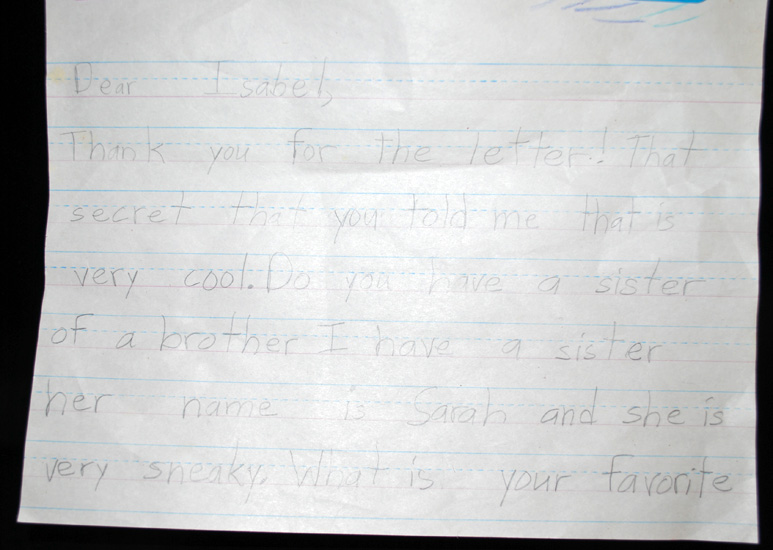 Dear Isabel,
Thank you for the letter! That
secret that you told me that is
very cool. Do you have a sister
of a brother I have a sister
her name is Sarah and she is
very sneaky. What is your favorite